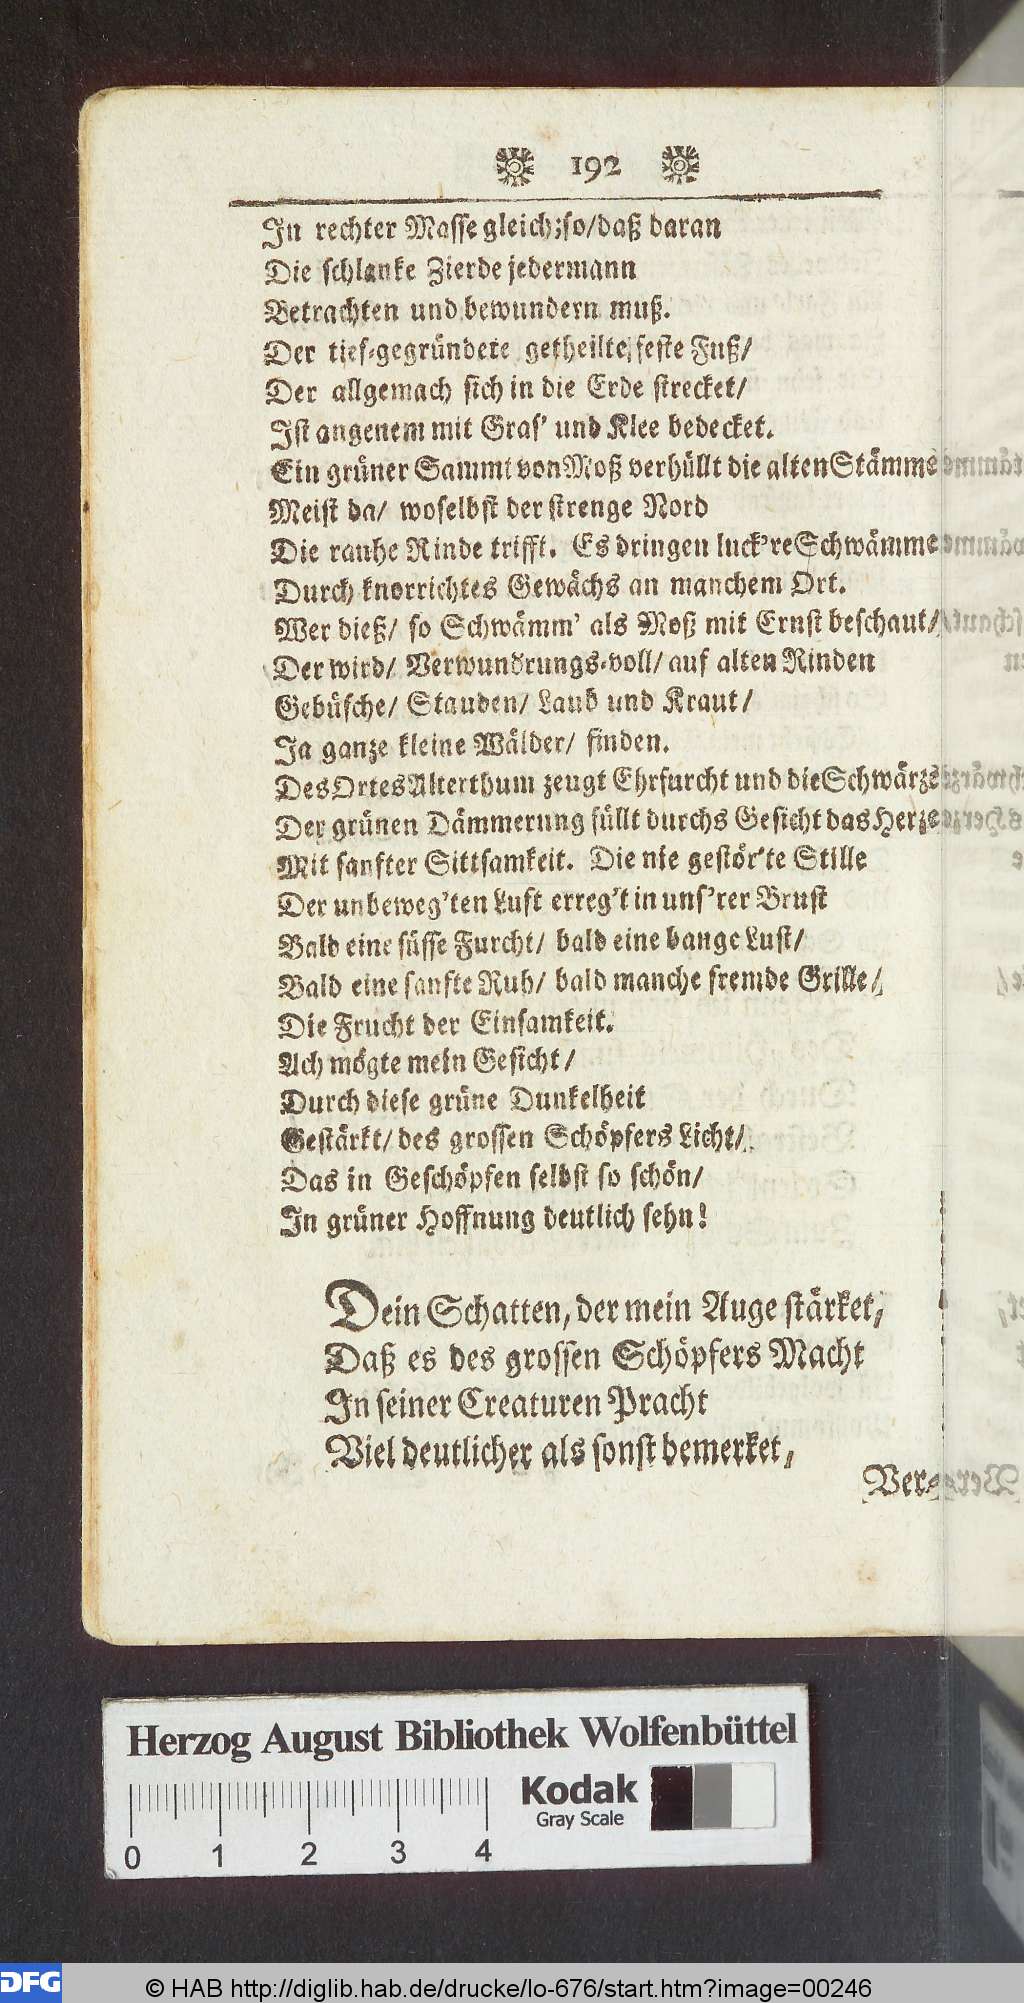 192
In rechter Masse gleich; so/ daß daran
Die schlanke Zierde jedermann
Betrachten und bewundern muß.
Der tief-gegründete getheilte, feste Fuß/
Der allgemach sich in die Erde strecket/
Ist angenem mit Gras' und Klee bedecket.
Ein grüner Sammt von Moß verhüllt die alten Stämme
Meist da/ woselbst der strenge Nord
Die rauhe Rinde trifft. Es dringen luck're Schwämme
Durch knorrichtes Gewächs an manchem Ort.
Wer dieß/ so Schwämm' als Moß mit Ernst beschaut/
Der wird/ Verwundrungs-voll/ auf alten Rinden
Gebüsche/ Stauden/ Laub und Kraut/
Ja ganze kleine Wälder/ finden.
Des Ortes Alterthum zeugt Ehrfurcht und die Schwärze
Der grünen Dämmerung füllt durchs Gesicht das Herze
Mit sanfter Sittsamkeit. Die nie gestör'te Stille
Der unbeweg'ten Luft erreg't in uns'rer Brust
Bald eine süsse Furcht/ bald eine bange Lust/
Bald eine sanfte Ruh/ bald manche fremde Grille/
Die Frucht der Einsamkeit.
Ach mögte mein Gesicht/
Durch diese grüne Dunkelheit
Gestärkt/ des grossen Schöpfers Licht/
Das in Geschöpfen selbst so schön/
In grüner Hoffnung deutlich sehn!
Dein Schatten, der mein Auge stärket,
Daß es des grossen Schöpfers Macht
In seiner Creaturen Pracht
Viel deutlicher als sonst bemerket,
Ver-
Herzog August Bibliothek Wolfenbüttel
Kodak
Gray Scale
0 1 2 3 4
DFG
© HAB http://diglib.hab.de/drucke/lo-676/start.htm?image=00246